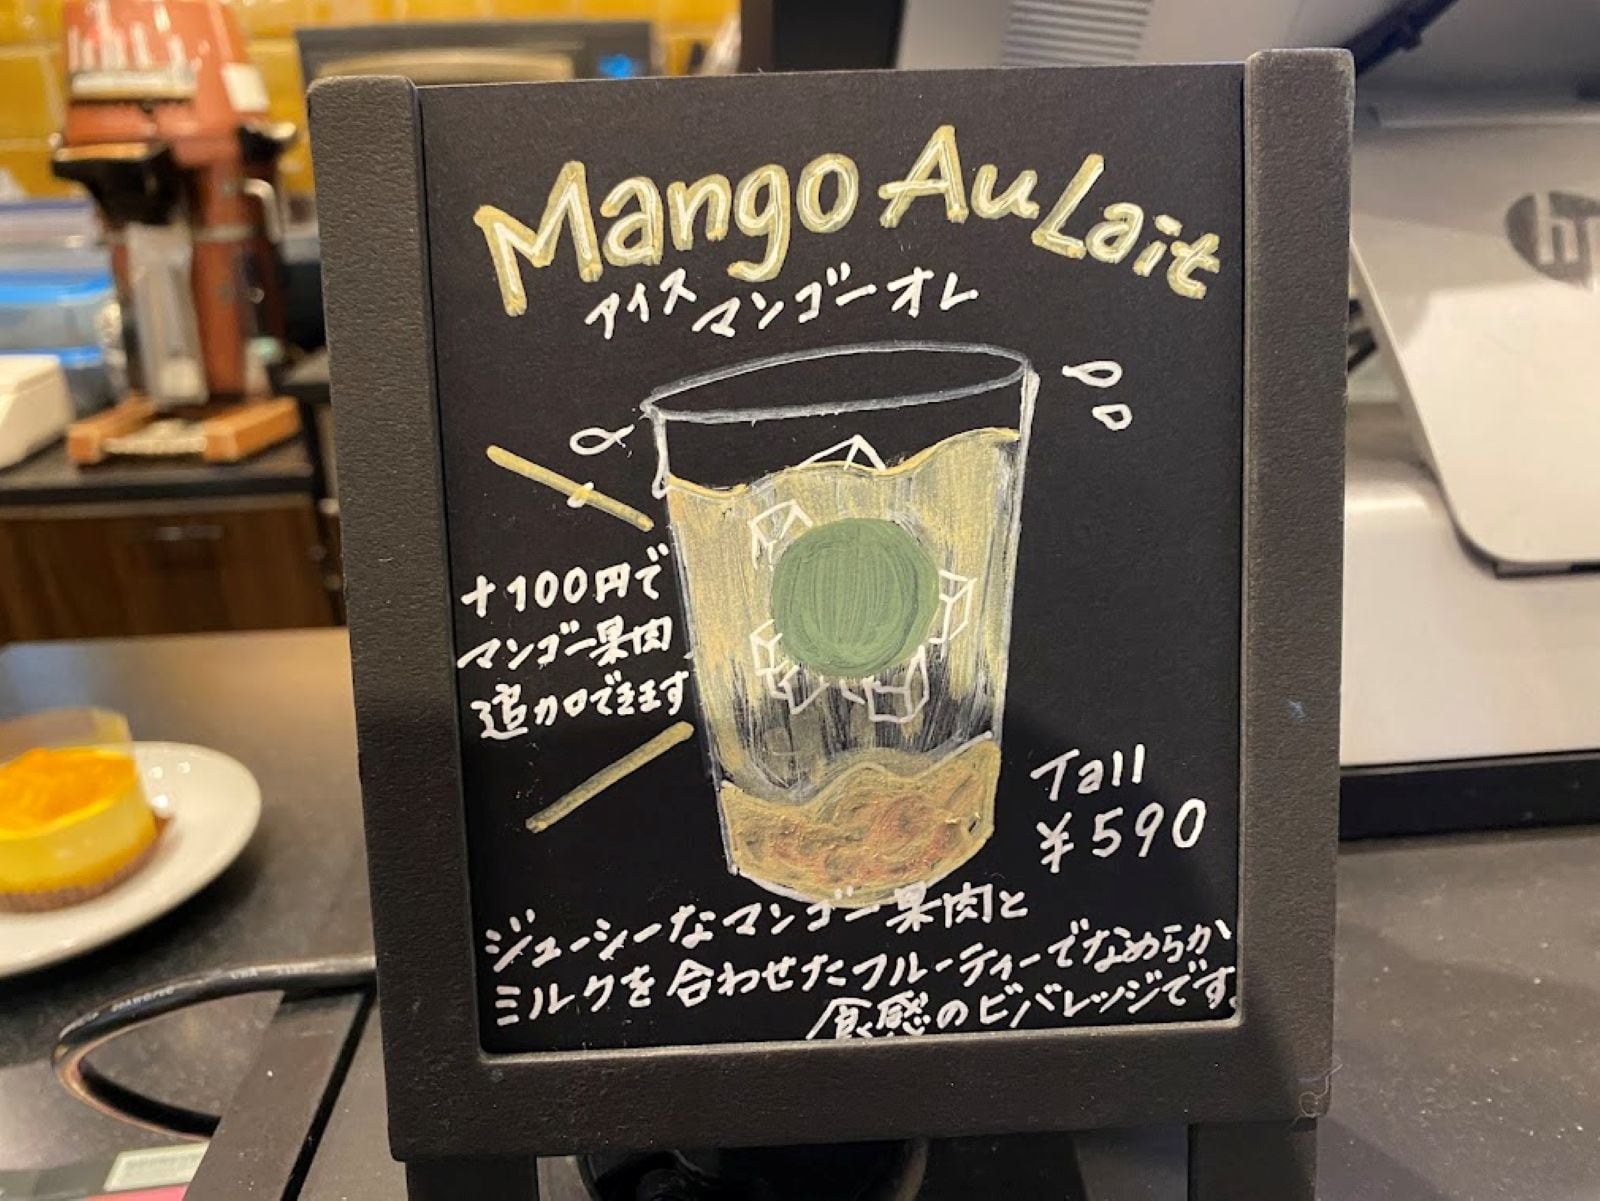 Mango Au Lait
アイス マンゴーオレ
+100円で
マンゴー果肉
追加できます
Tall
¥590
ジューシーなマンゴー果肉と
ミルクを合わせたフルーティーでなめらか
食感のビバレッジです。
hp